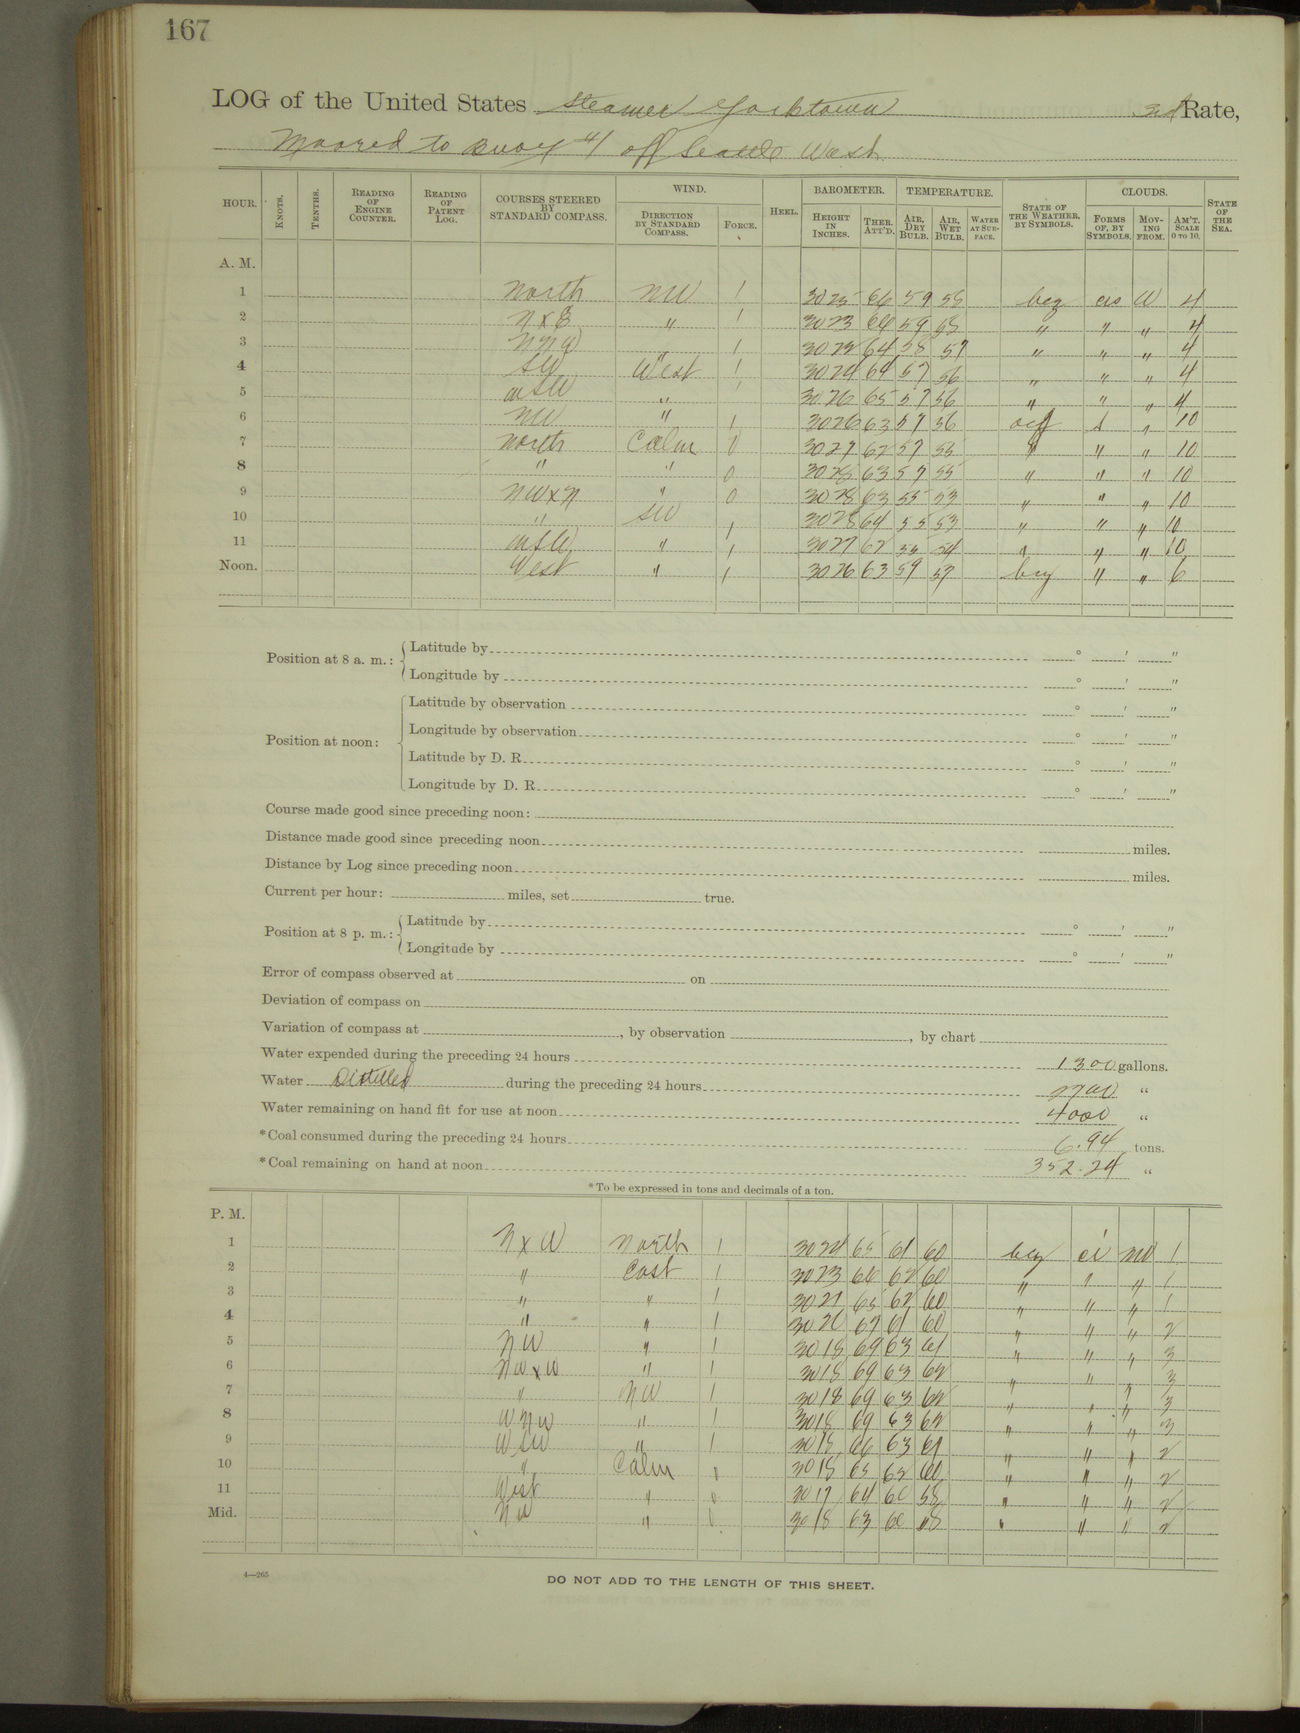 167
LOG of the United States Steamer Yorktown 3d Rate,
Moored to Buoy #1 off Seattle Wash
HOUR. KNOTS. TENTHS. READING OF ENGINE COUNTER. READING OF PATENT LOG. COURSES STEERED BY STANDARD COMPASS. WIND. DIRECTION BY STANDARD COMPASS. FORCE. HEEL. BAROMETER. HEIGHT IN INCHES. THER. ATT'D. TEMPERATURE. AIR, DRY BULB. AIR, WET BULB. WATER AT SURFACE. STATE OF THE WEATHER, BY SYMBOLS. CLOUDS. FORMS OF, BY SYMBOLS. MOVING FROM. AM'T. SCALE 0 TO 10. STATE OF THE SEA.
A. M.
1 North NW 1 3025 66 59 58 W 4
2 NxE " 1 3023 64 59 58 " " " 4
3 NNW 1 3023 64 58 57 " " " 4
4 SW West 1 3024 64 57 56 " " " 4
5 WSW " 1 3026 65 57 56 " " " 4
6 NW " 1 3026 63 57 56 " 10
7 North Calm 0 3027 62 57 55 " " " 10
8 " " 0 3028 63 57 55 " " " 10
9 NWxN " 0 3028 63 55 53 " " " 10
10 " SW 1 3028 64 55 53 " " " 10
11 WSW " 1 3027 62 55 54 " " " 10
Noon. West " 1 3026 63 59 57 " " 6
Position at 8 a. m.: Latitude by ° ′ ″
Longitude by ° ′ ″
Latitude by observation ° ′ ″
Position at noon: Longitude by observation ° ′ ″
Latitude by D. R. ° ′ ″
Longitude by D. R. ° ′ ″
Course made good since preceding noon:
Distance made good since preceding noon miles.
Distance by Log since preceding noon miles.
Current per hour: miles, set true.
Position at 8 p. m.: Latitude by ° ′ ″
Longitude by ° ′ ″
Error of compass observed at on
Deviation of compass on
Variation of compass at , by observation , by chart
Water expended during the preceding 24 hours 1300 gallons.
Water Distilled during the preceding 24 hours 2700 "
Water remaining on hand fit for use at noon 4000 "
*Coal consumed during the preceding 24 hours 6.94 tons.
*Coal remaining on hand at noon 352.24 "
*To be expressed in tons and decimals of a ton.
P. M.
1 NxW North 1 3024 65 61 60 ci NW 1
2 " East 1 3023 66 62 60 " " " 1
3 " " 1 3021 65 62 60 " " " 1
4 " " 1 3020 67 61 60 " " " 2
5 NW " 1 3018 69 63 61 " " " 3
6 NWxW " 1 3018 69 63 62 " " " 3
7 " NW 1 3018 69 63 62 " " " 3
8 WNW " 1 3018 69 63 62 " " " 3
9 WSW " 1 3018 66 63 61 " " " 2
10 " Calm 0 3018 65 62 60 " " " 2
11 West " 0 3017 64 60 58 " " " 2
Mid. NW " 0 3018 63 60 58 " " " 2
4—265
DO NOT ADD TO THE LENGTH OF THIS SHEET.